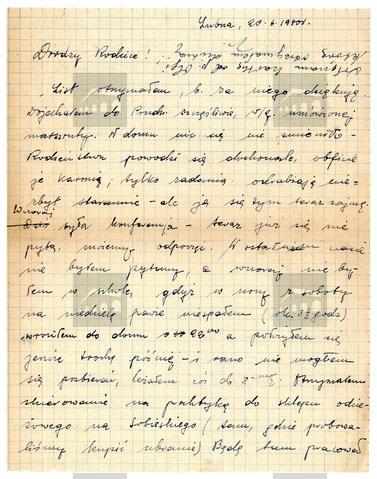 Drodzy Rodzice!
List otrzymałem, b. za niego dziękuję.
Dojechałem do Rudki szczęśliwie, wg. umówionej
marszruty. W domu nic się nie zmieniło.
Rodzeństwu powodzi się doskonale, obficie
je karmię; tylko zadania odrabiają nie-
zbyt starannie - ale ja się tym teraz zajmę.
Wczoraj
była konferencja - teraz już się nie
pyta, możemy odpocząć. W ostatnim czasie
nie byłem pytany, a wczoraj nie by-
łem w szkole, gdyż w nocy z soboty
na niedzielę prawie niespałem
wróciłem do domu o a położyłem się
jeszcze trochę później - i rano nie mogłem
się pozbierać, leżałem coś do Otrzymałem
skierowanie na praktykę do sklepu odzie-
żowego na Sobieskiego (tam, gdzie próbowa-
liśmy kupić ubranie) Będę tam pracował